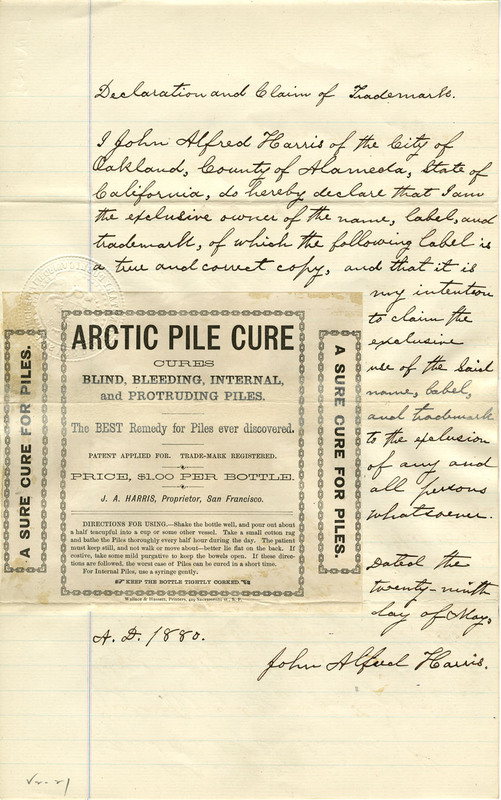 Declaration and Claim of Trademark.
I John Alfred Harris of the City of
Oakland, County of Alameda, State of
California, do hereby declare that I am
the exclusive owner of the name, label, and
trademark, of which the following label is
a true and correct copy, and that it is
my intention
to claim the
exclusive
use of the said
name, label,
and trademark
to the exclusion
of any and
all persons
whatsoever.
Dated the
twenty-ninth
day of May,
A.D. 1880.
John Alfred Harris.
A SURE CURE FOR PILES.
ARCTIC PILE CURE
CURES
BLIND, BLEEDING, INTERNAL,
and PROTRUDING PILES.
The BEST Remedy for Piles ever discovered.
PATENT APPLIED FOR. TRADE-MARK REGISTERED.
PRICE, $1.00 PER BOTTLE.
J. A. HARRIS, Proprietor, San Francisco.
DIRECTIONS FOR USING.—Shake the bottle well, and pour out about
a half teacupful into a cup or some other vessel. Take a small cotton rag
and bathe the Piles thoroughly every half hour during the day. The patient
must keep still, and not walk or move about—better lie flat on the back. If
costive, take some mild purgative to keep the bowels open. If these direc-
tions are followed, the worst case of Piles can be cured in a short time.
For Internal Piles, use a syringe gently.
KEEP THE BOTTLE TIGHTLY CORKED.
Printers, S. F.
A SURE CURE FOR PILES.